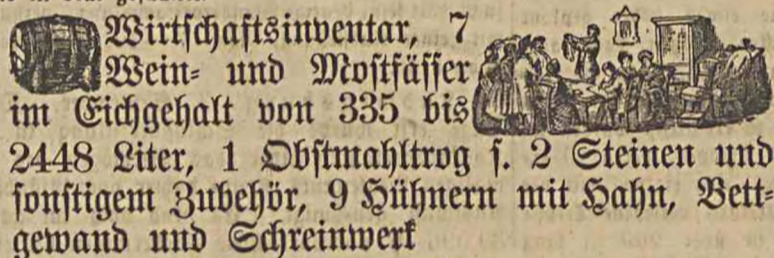 Wirtſchaftsinventar, 7
Wein- und Moſtfäſſer
im Eichgehalt von 335 bis
2448 Liter, 1 Obſtmahltrog ſ. 2 Steinen und
ſonſtigem Zubehör, 9 Hühnern mit Hahn, Bett-
gewand und Schreinwerk